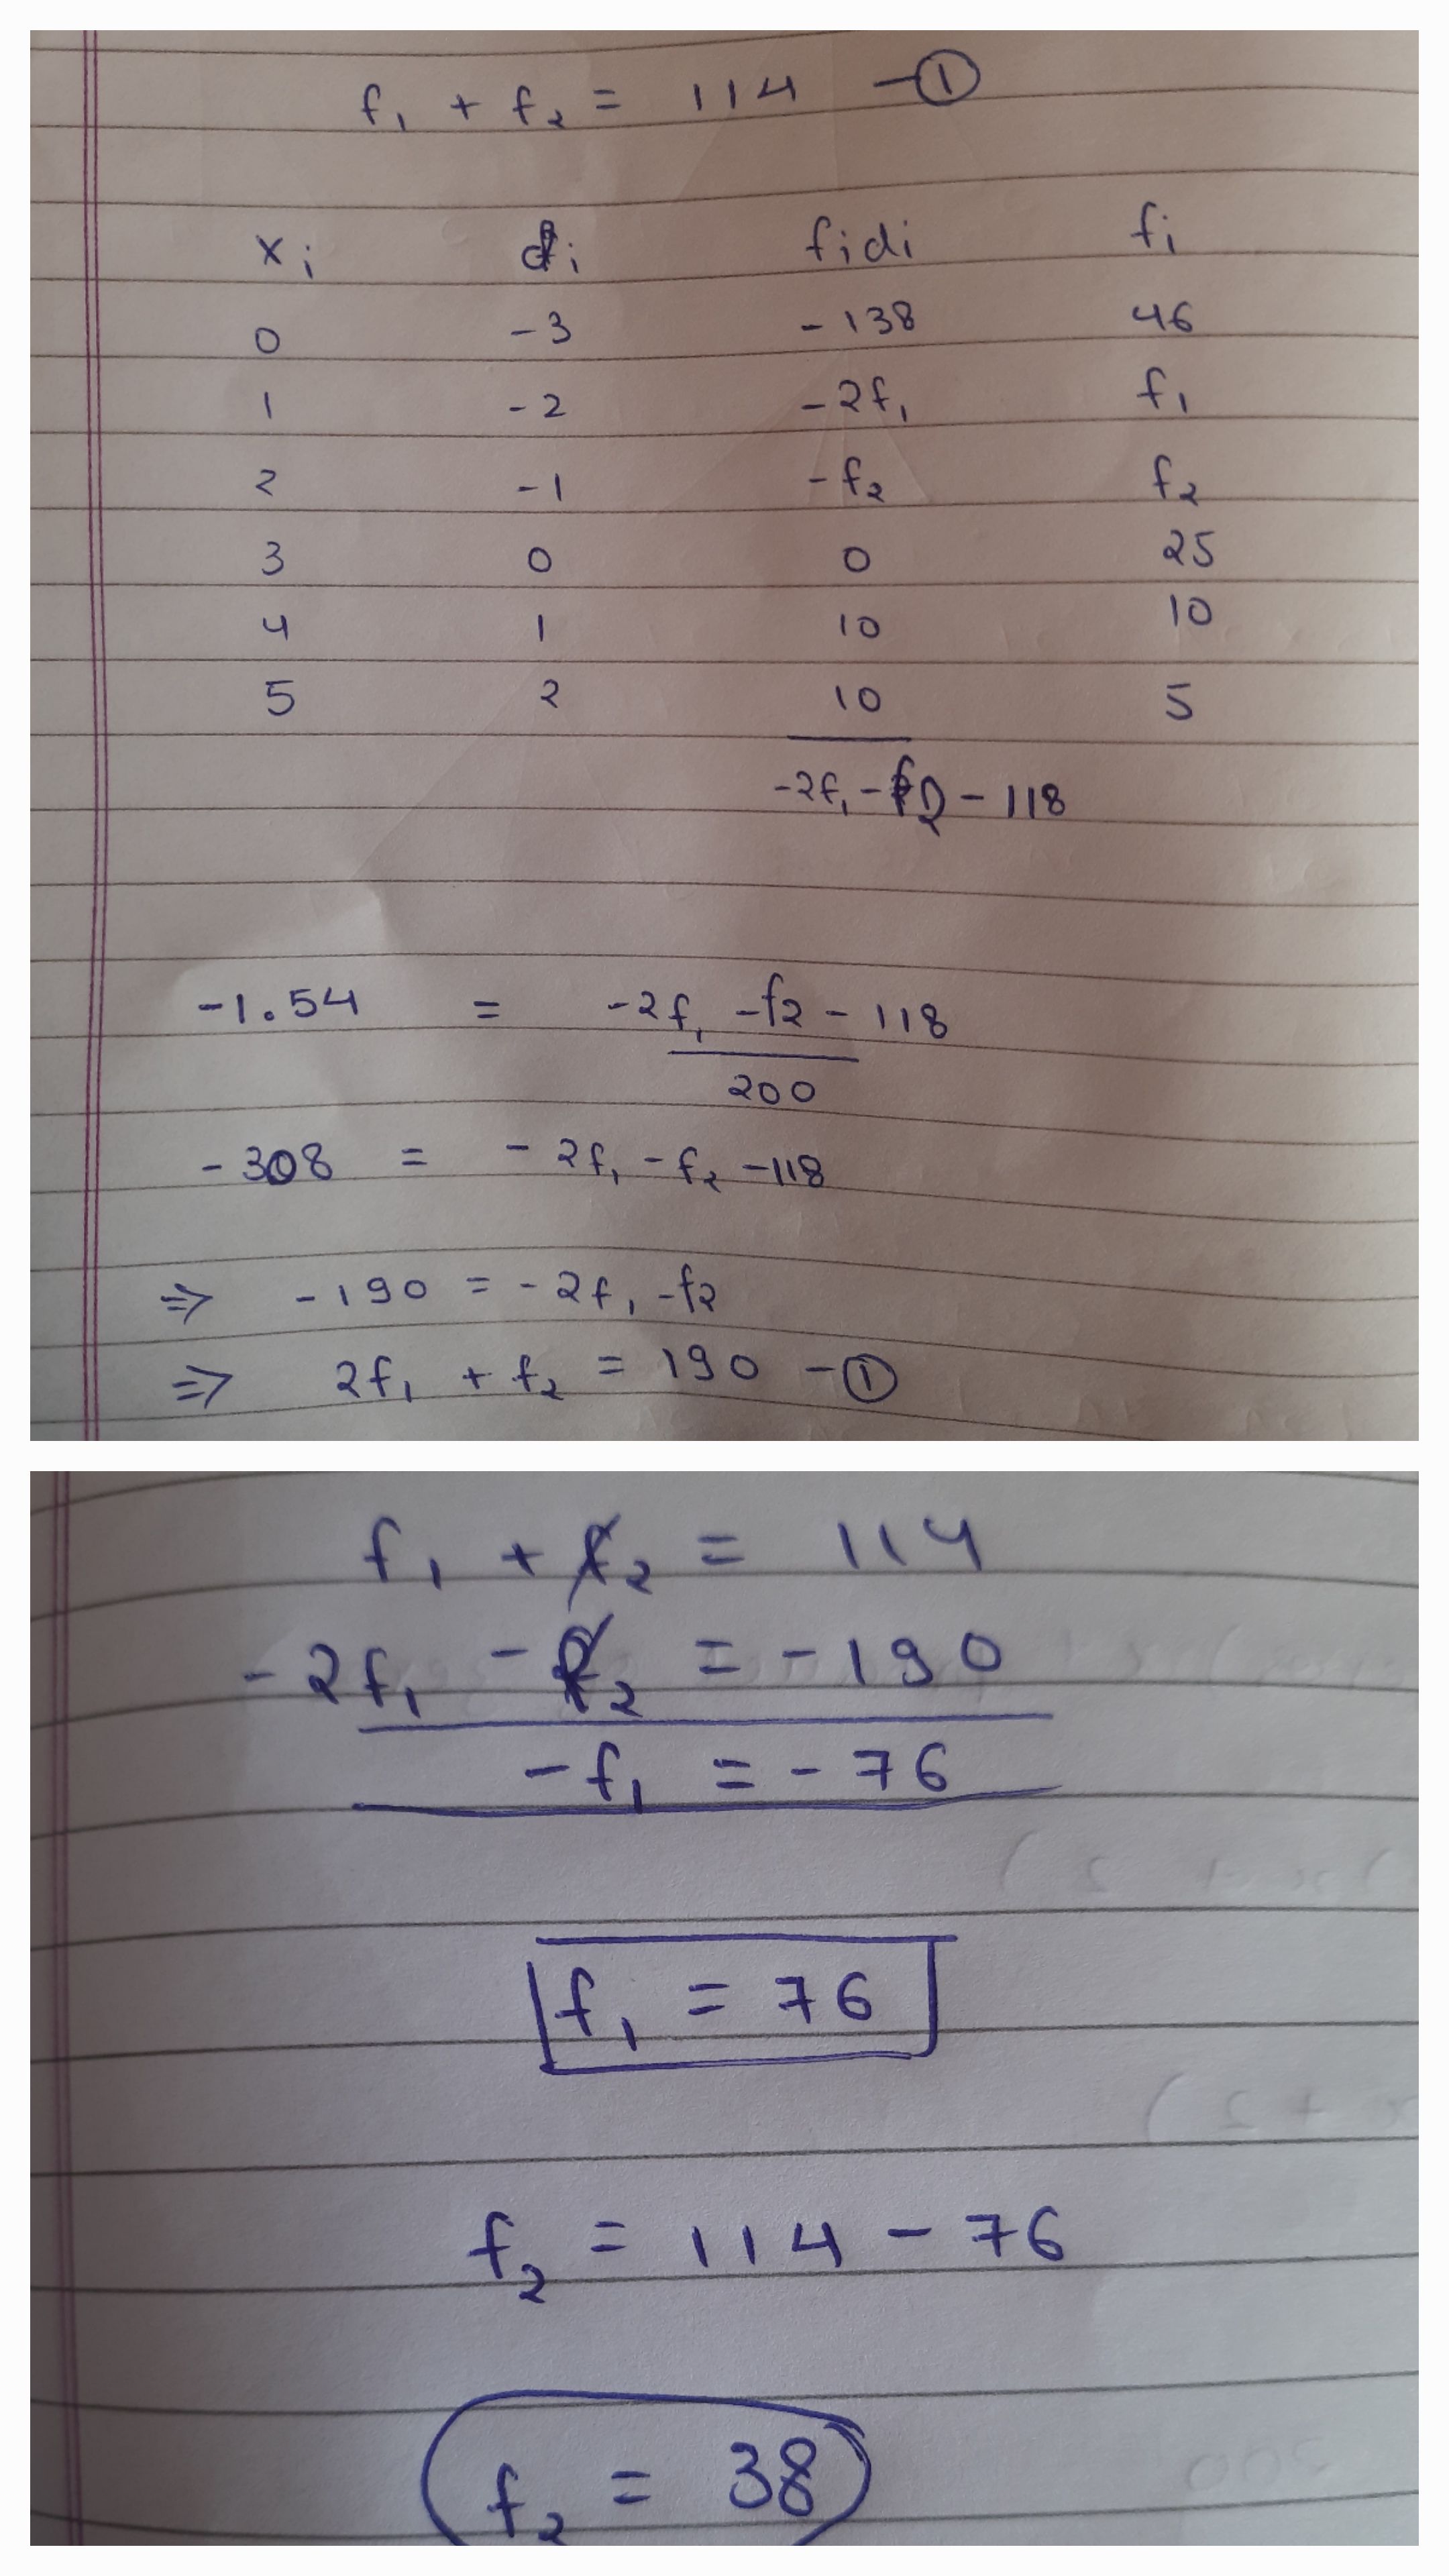 f₁ + f₂ = 114 —①
xᵢ dᵢ fᵢdᵢ fᵢ
0 -3 -138 46
1 -2 -2f₁ f₁
2 -1 -f₂ f₂
3 0 0 25
4 1 10 10
5 2 10 5
-2f₁ - f₂ - 118
-1.54 = -2f₁ - f₂ - 118
200
-308 = -2f₁ - f₂ - 118
⇒ -190 = -2f₁ - f₂
⇒ 2f₁ + f₂ = 190 —①
f₁ + f₂ = 114
-2f₁ - f₂ = -190
-f₁ = -76
f₁ = 76
f₂ = 114 - 76
f₂ = 38